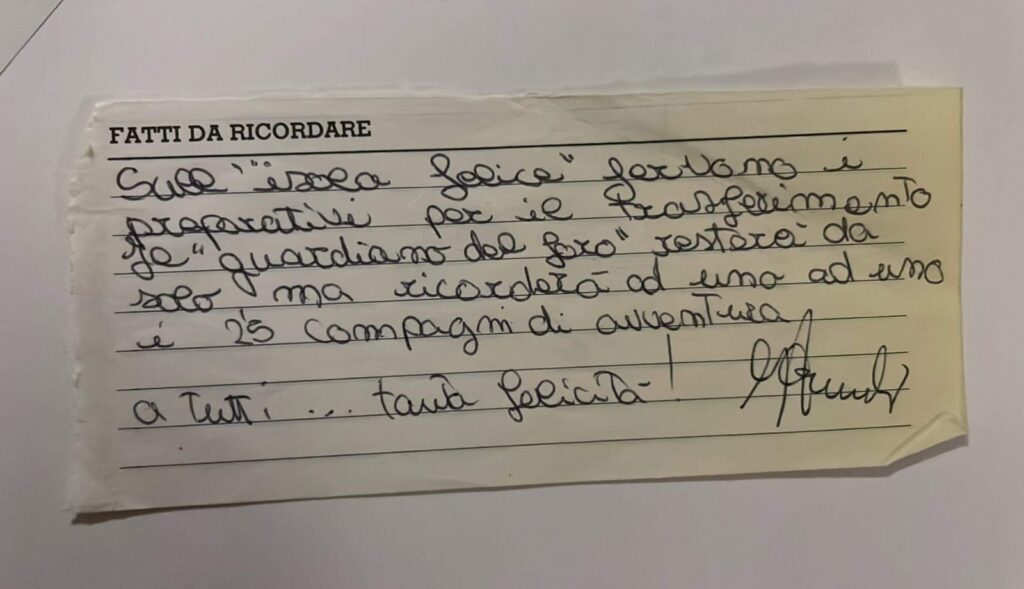 FATTI DA RICORDARE
Sull' "isola felice" fervono i
preparativi per il trasferimento
Il "guardiano del faro" resterà da
solo ma ricorderà ad uno ad uno
i 25 compagni di avventura
a tutti ... tanta felicità !